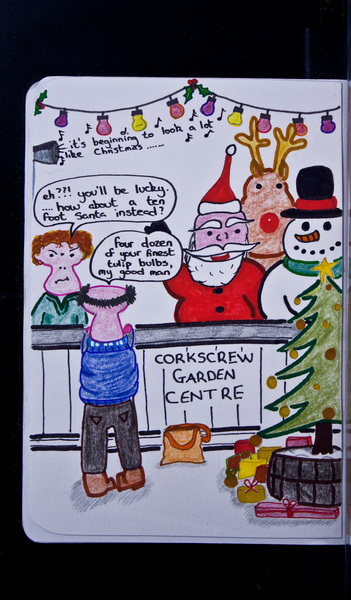 it's beginning to look a lot
like Christmas ......
eh??! you'll be lucky.
.... how about a ten
foot Santa instead?
four dozen
of your finest
tulip bulbs,
my good man
CORKSCREW
GARDEN
CENTRE